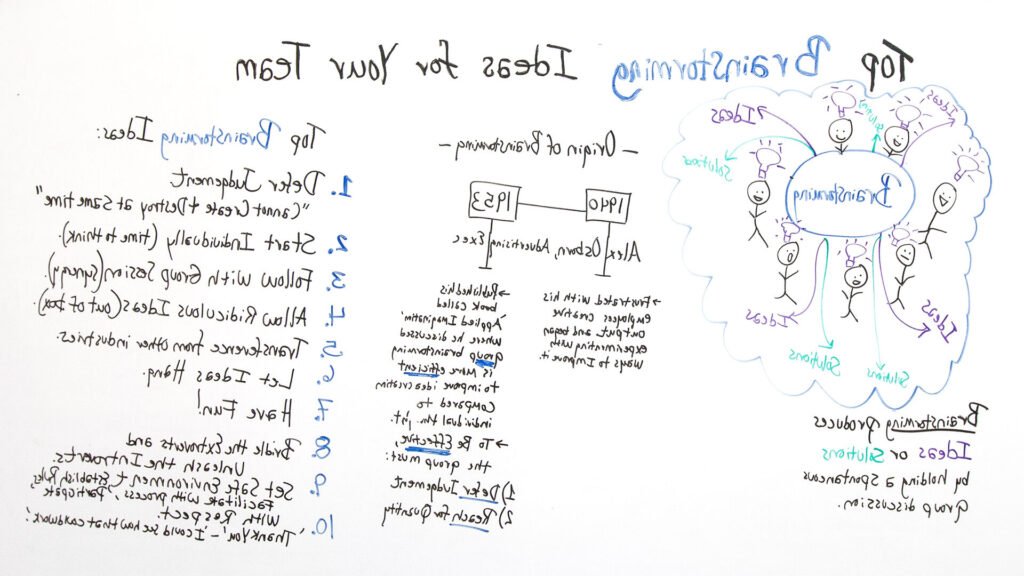 Top Brainstorming Ideas for Your Team
Ideas
Solutions
Ideas
Solutions
Brainstorming
Ideas
Solutions
Solutions
Ideas
Brainstorming Produces
Ideas or Solutions
by holding a Spontaneous
Group discussion.
- Origin of Brainstorming -
1940
1953
Alex Osborn, Advertising Exec
→ Frustrated with his
employees creative
output and began
experimenting with
ways to Improve it.
→ Published his
book called
"Applied Imagination"
where he discussed
group brainstorming
is more efficient
to improve idea creation
Compared to
individual thinking.
→ To Be Effective,
the group must:
1) Defer Judgement
2) Reach for Quantity
Top Brainstorming Ideas:
1. Defer Judgement
"Cannot Create + Destroy at Same time"
2. Start Individually (time to think).
3. Follow With Group Session (synergy).
4. Allow Ridiculous Ideas (out of box)
5. Transference from other industries.
6. Let Ideas Hang.
7. Have Fun!
8. Bridle the Extroverts and
Unleash the Introverts.
9. Set Safe Environment, Establish Rules,
Facilitate with process, Participate
With Respect.
10. 'Thank You' - 'I could see how that could work'.